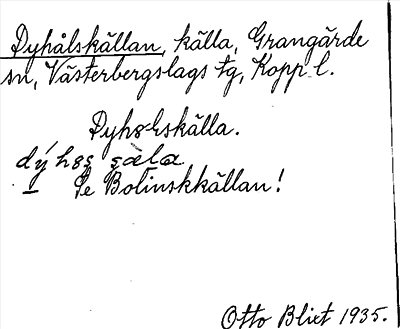 Dyhålskällan, källa, Grangärde
sn, Västerbergslags tg, Kopp. l.
Dyhålskälla.
Se Bolinskkällan!
Otto Blixt 1935.